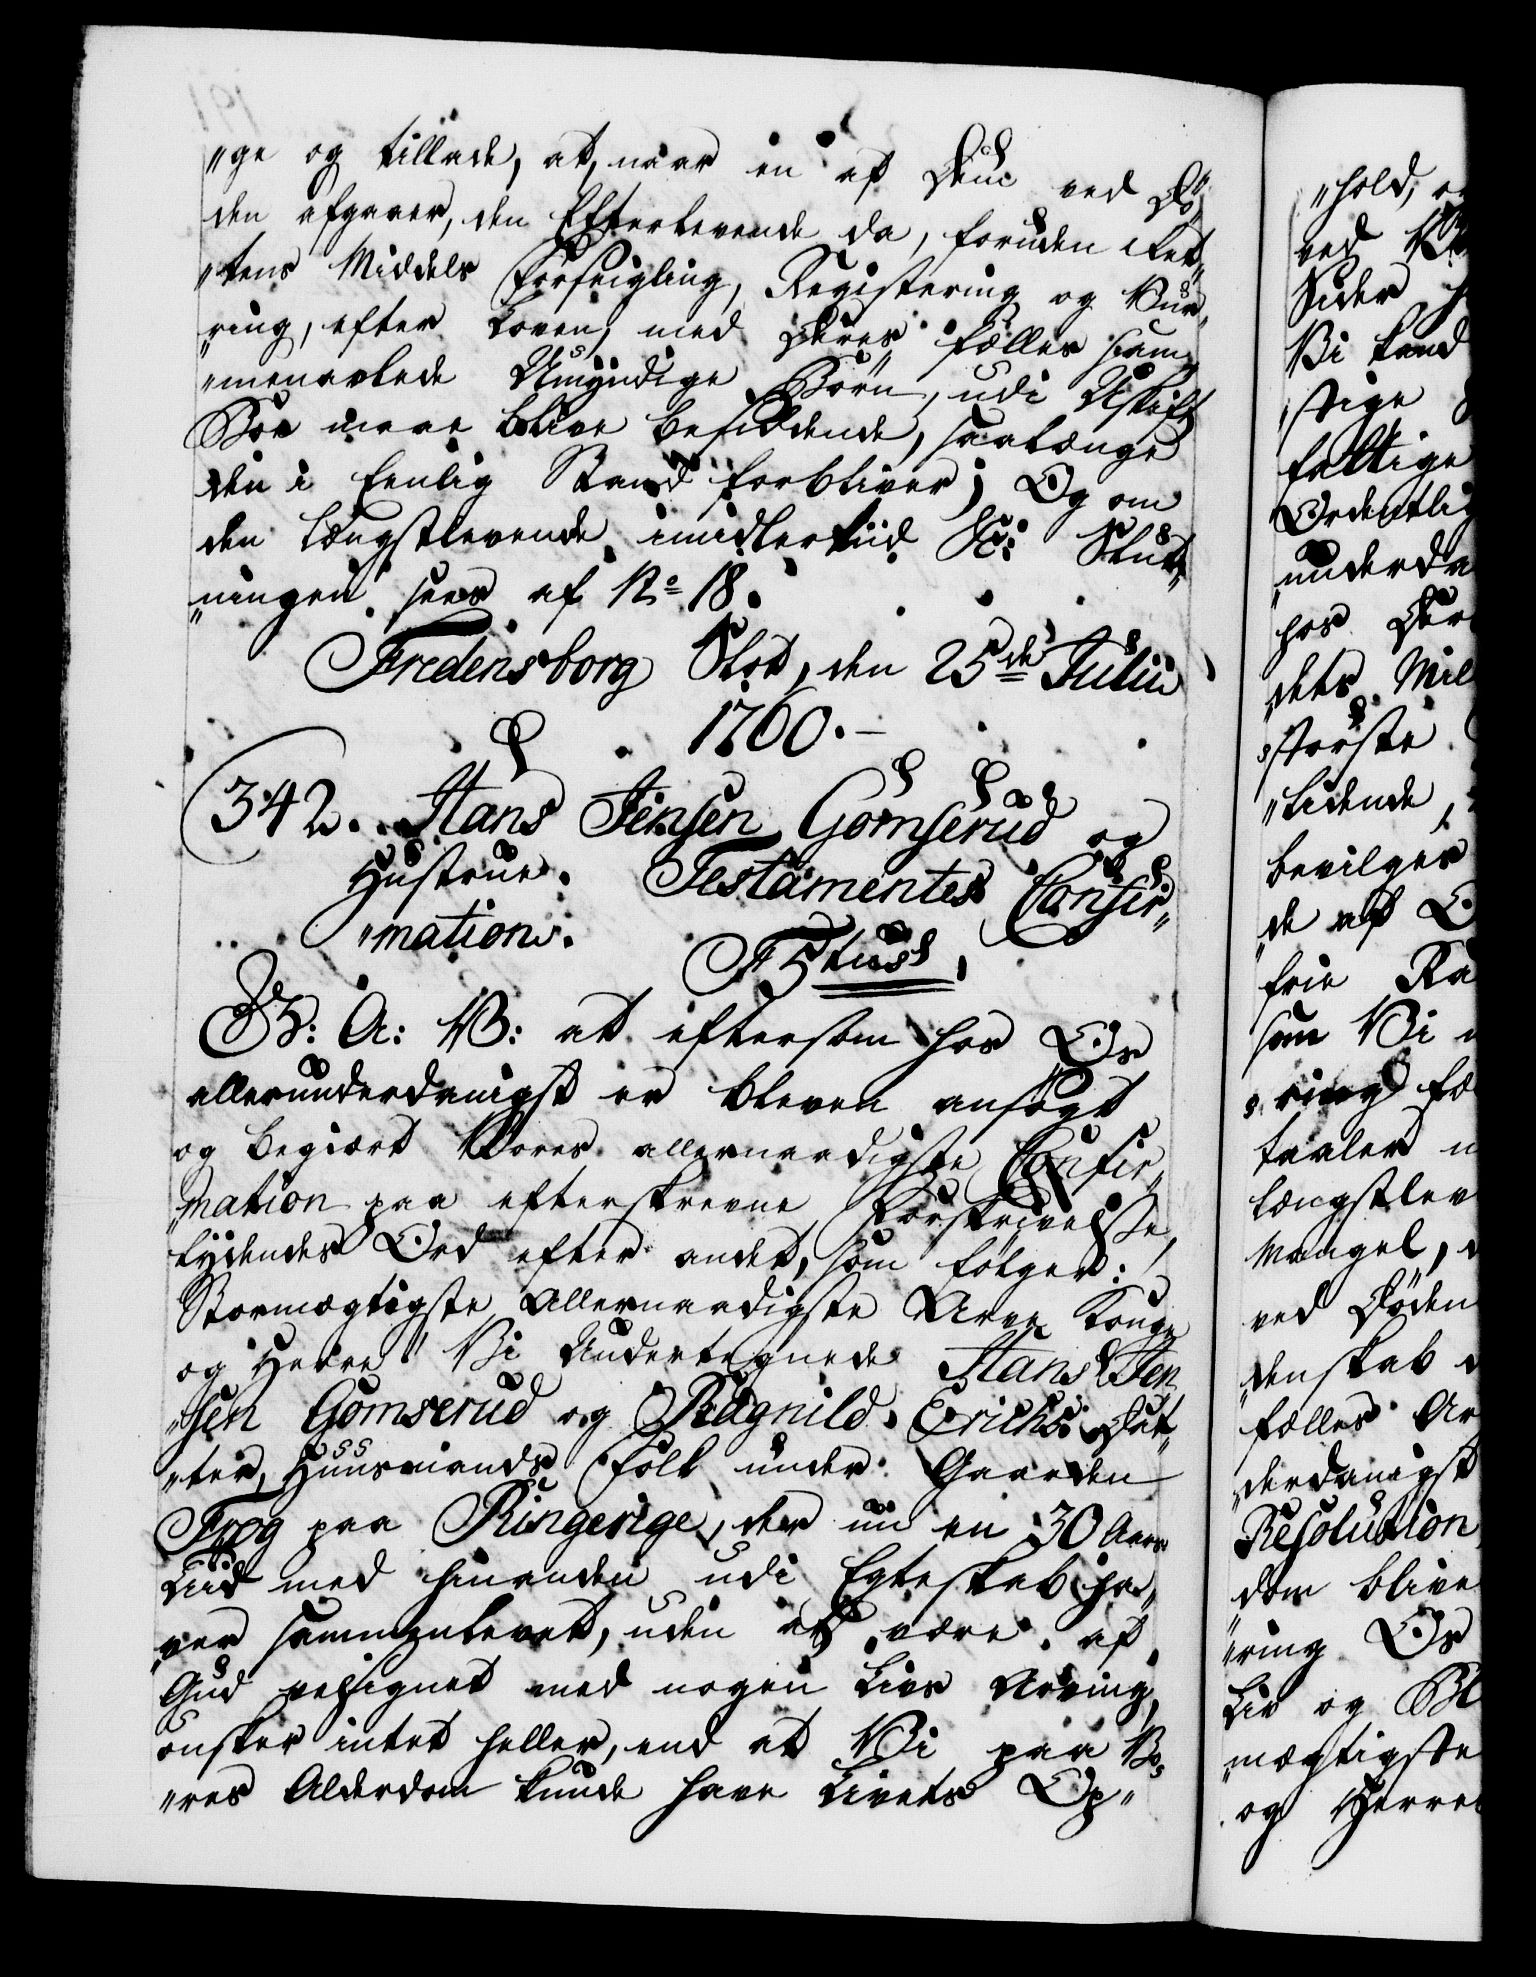 "ge og tillade, at, naar en af Dem ved Dö-
den afgaaer, den Efterlevende da, foruden Ret-
"tens Middels Forseigling, Registering og Vur-
"ring, efter Loven, med Deres fælles sam-
"menavlede Umyndige Börn, udi Uskift
Boe maae blive besiddende, saalænge
den i Eenlig Stand forbliver; Og om
den længstlevende imidlertiid &c: Slut-
"ningen sees af No 18.
Fredensborg Slot, den 25de Julii
1760.
342. Hans Jensen Gomserud og
Hustrue. Testamentes Confir-
"mation.
F 5 tus
G: A: V: at eftersom hos Os
allerunderdanigst er bleven ansögt
og begiært Vores allernaadigste Confir-
"mation paa efterskrevne Forskrivelse,
lydendes Ord efter andet, som fölger:
Stormægtigste Allernaadigste Arve Konge
og Herre! Vi Undertegnede Hans Jen
"sen Gomserud og Ragnild Erichs Dat-
"ter, Huusmands Folk under Gaarden
Frog paa Ringerige, der nu en 30 Aars
Tiid med hinanden udi Egteskab ha-
"ver sammenlevet, uden at være af
Gud velsignet med nogen Livs Arving,
önsker intet heller, end at Vi paa Vo-
"res Alderdom kunde have Livets Op-
"hold, o
ved
Sider
Vi
"stige
fattige
Ordentlig
underda
hos Der
"dets Mil
störste
"lidende,
bevilges
de af O
frie Ra
som Vi
ring fæ
taaler
længstlev
Mangel,
ved Döden
"denskab
fælles Ar
"derdanigst
Resolution
dom blive
"ring Os
Liv og Bl
mægtigste
og Herre